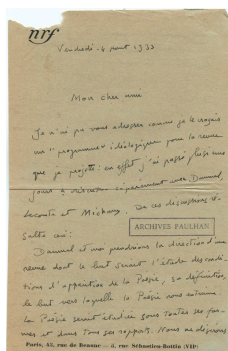 nrf
Vendredi - 4 août 1933
Mon cher ami
Je n'ai pu vous adresser comme je le croyais
un "programme" idéologique pour la revue
que je projette : en effet j'ai passé plusieurs
jours à discuter séparément avec Daumal,
Lecomte et Michaux. De ces discussions ré-
sulte ceci :
ARCHIVES PAULHAN
Daumal et moi prendrions la direction d'une
revue dont le but serait l'étude des condi-
tions d'apparition de la Poésie, sa définition,
le but vers laquelle la Poésie nous entraîne.
La Poésie serait étudiée sous toutes ses for-
mes et dans tous ses rapports. Nous ne désirons
Paris, 43, rue de Beaune — 5, rue Sébastien-Bottin (VIIe)